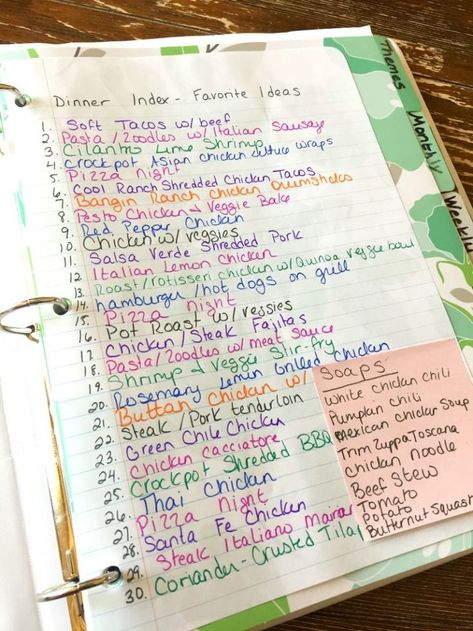 Themes
Monthly
Weekly
Dinner Index - Favorite Ideas
1. Soft Tacos w/ beef
2. Pasta/Zoodles w/ Italian Sausage
3. Cilantro Lime Shrimp
4. Crockpot Asian chicken lettuce wraps
5. Pizza night
6. Cool Ranch Shredded Chicken Tacos
7. Bangin Ranch chicken drumsticks
8. Pesto Chicken & Veggie Bake
9. Red Pepper Chicken
10. Chicken w/ veggies
11. Salsa Verde Shredded Pork
12. Italian Lemon Chicken
13. Roast/rotisseri chicken w/ Quinoa veggie bowl
14. hamburger/hot dogs on grill
15. Pizza night
16. Pot Roast w/ veggies
17. Chicken/Steak Fajitas
18. Pasta/Zoodles w/ meat sauce
19. Shrimp & veggie Stir-fry
20. Rosemary Lemon Grilled Chicken
21. Chicken w/
22. Steak/Pork tenderloin
23. Green Chile Chicken
24. Chicken cacciatore
25. Crockpot Shredded BBQ
26. Thai Chicken
27. Pizza Night
28. Santa Fe Chicken
29. Steak Italiano
30. Coriander-Crusted Tila
Soaps
White chicken chili
Pumpkin chili
Mexican chicken Soup
Trim Zuppa Toscana
chicken noodle
Beef Stew
Tomato
Potato
Butternut Squash